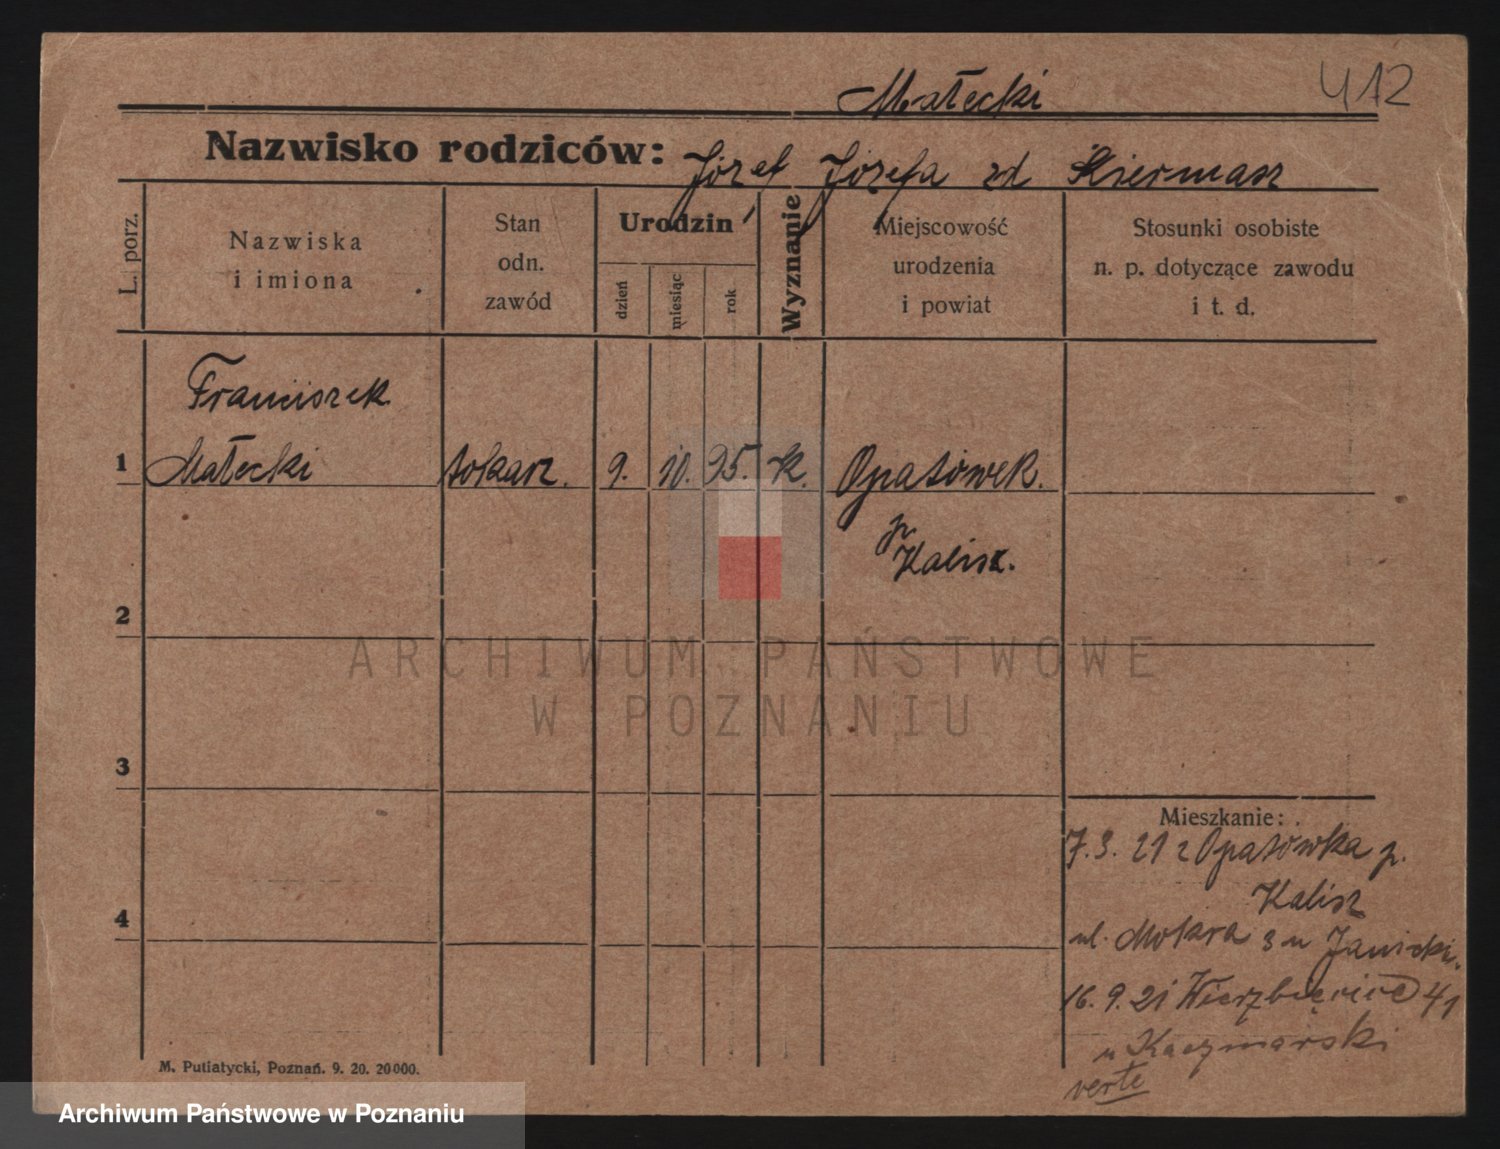 Małecki
412
Nazwisko rodziców: Józef Józefa zd Kiermasz
L. porz.
Nazwiska
i imiona
Stan
odn.
zawód
Urodzin
dzień
miesiąc
rok
Wyznanie
Miejscowość
urodzenia
i powiat
Stosunki osobiste
n. p. dotyczące zawodu
i t. d.
Franciszek
1 Małecki tokarz. 9. 10. 95. k. Opatówek.
p.
Kalisz.
2
3
4
ARCHIWUM PAŃSTWOWE
W POZNANIU
Mieszkanie:
7.3. 21 z Opatówka p.
Kalisz
ul. Mokra 3 u Janicki.
16. 9. 21 Wierzbięcice 41
u Kaczmarski
verte
M. Putiatycki, Poznań. 9. 20. 20000.
Archiwum Państwowe w Poznaniu